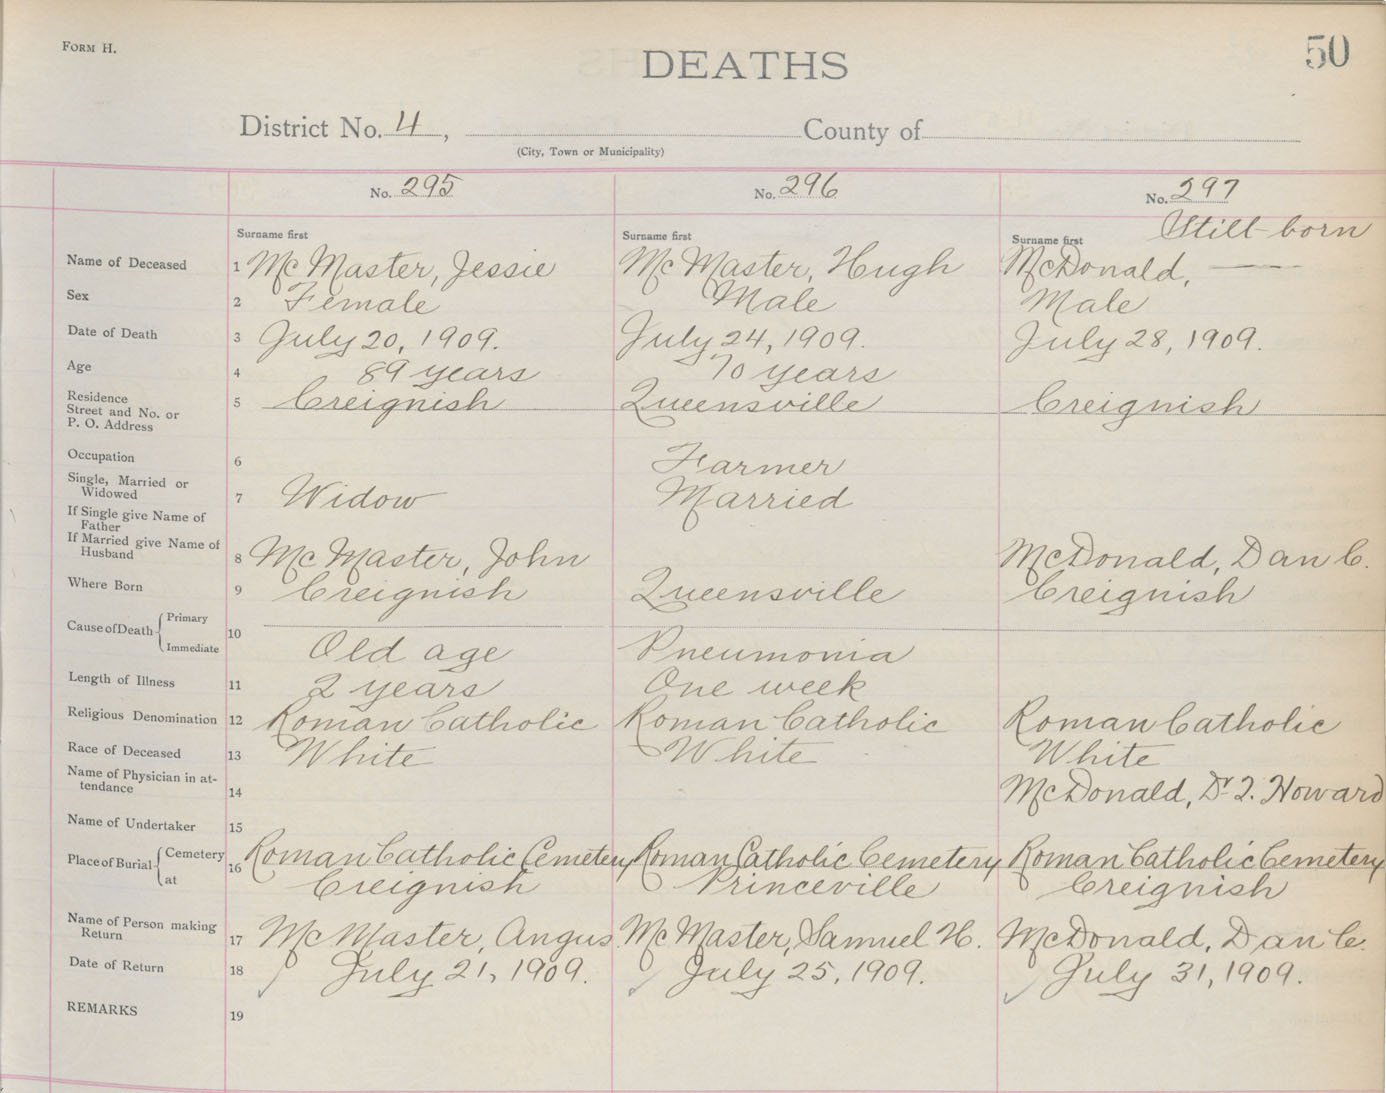 FORM H.
DEATHS
50
District No. 4, County of
(City, Town or Municipality)
No. 295 No. 296 No. 297
Still-born
Surname first Surname first Surname first
Name of Deceased 1 McMaster, Jessie McMaster, Hugh McDonald, —
Sex 2 Female Male Male
Date of Death 3 July 20, 1909. July 24, 1909. July 28, 1909.
Age 4 89 years 70 years
Residence
Street and No. or 5 Creignish Queensville Creignish
P. O. Address
Occupation 6 Farmer
Single, Married or
Widowed 7 Widow Married
If Single give Name of
Father
If Married give Name of
Husband 8 McMaster, John McDonald, Dan C.
Where Born 9 Creignish Queensville Creignish
Cause of Death Primary
10
Immediate Old age Pneumonia
Length of Illness 11 2 years One week
Religious Denomination 12 Roman Catholic Roman Catholic Roman Catholic
Race of Deceased 13 White White White
Name of Physician in at-
tendance 14 McDonald, Dr. J. Howard
Name of Undertaker 15
Place of Burial Cemetery 16 Roman Catholic Cemetery Roman Catholic Cemetery Roman Catholic Cemetery
at Creignish Princeville Creignish
Name of Person making
Return 17 McMaster, Angus McMaster, Samuel H. McDonald, Dan C.
Date of Return 18 July 21, 1909. July 25, 1909. July 31, 1909.
REMARKS 19